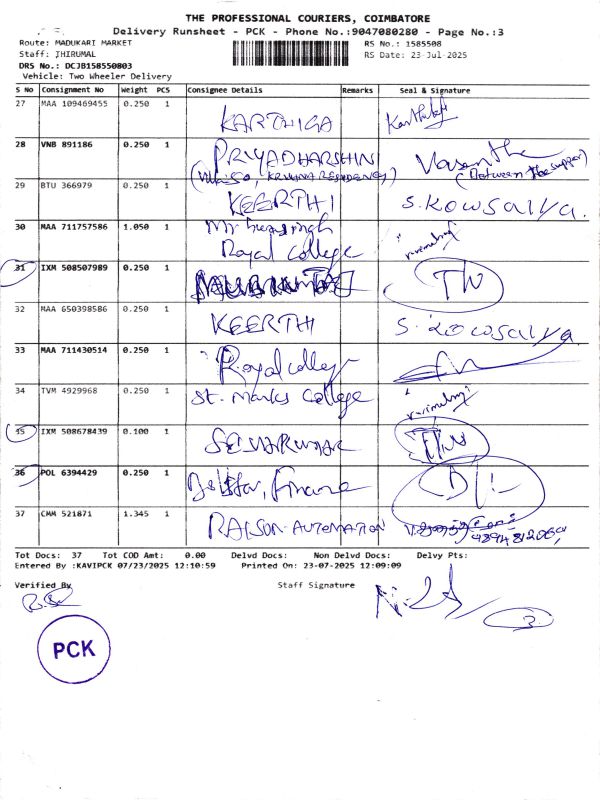 THE PROFESSIONAL COURIERS, COIMBATORE
Delivery Runsheet - PCK - Phone No.:9047080280 - Page No.:3
Route: MADUKARI MARKET
RS No.: 1585508
Staff: THIRUMAL
RS Date: 23-Jul-2025
DRS No.: DCJB158550803
Vehicle: Two Wheeler Delivery
S No Consignment No Weight PCS Consignee Details Remarks Seal & Signature
27 MAA 109469455 0.250 1
KARTHIGA
28 VNB 891186 0.250 1
PRIYADHARSHINI
29 BTU 366979 0.250 1
KEERTHI S.KOWSALYA.
30 MAA 711757586 1.050 1
Royal College
31 IXM 508507989 0.250 1
32 MAA 650398586 0.250 1
KEERTHI S.KOWSALYA.
33 MAA 711430514 0.250 1
Royal college
34 TVM 4929968 0.250 1 St. Marks College
35 IXM 508678439 0.100 1
36 POL 6394429 0.250 1
Finance
37 CMM 521871 1.345 1
AUTOMATION
Tot Docs: 37 Tot COD Amt: 0.00 Delvd Docs: Non Delvd Docs: Delvy Pts:
Entered By :KAVIPCK 07/23/2025 12:10:59 Printed On: 23-07-2025 12:09:09
Verified By Staff Signature
3
PCK